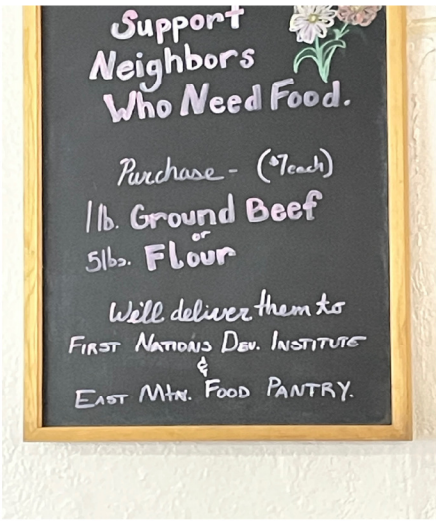 Support
Neighbors
Who Need Food.
Purchase - ($7 each)
1 lb. Ground Beef
or
5lbs. Flour
We'll deliver them to
FIRST NATIONS DEV. INSTITUTE
&
EAST MTN. FOOD PANTRY.